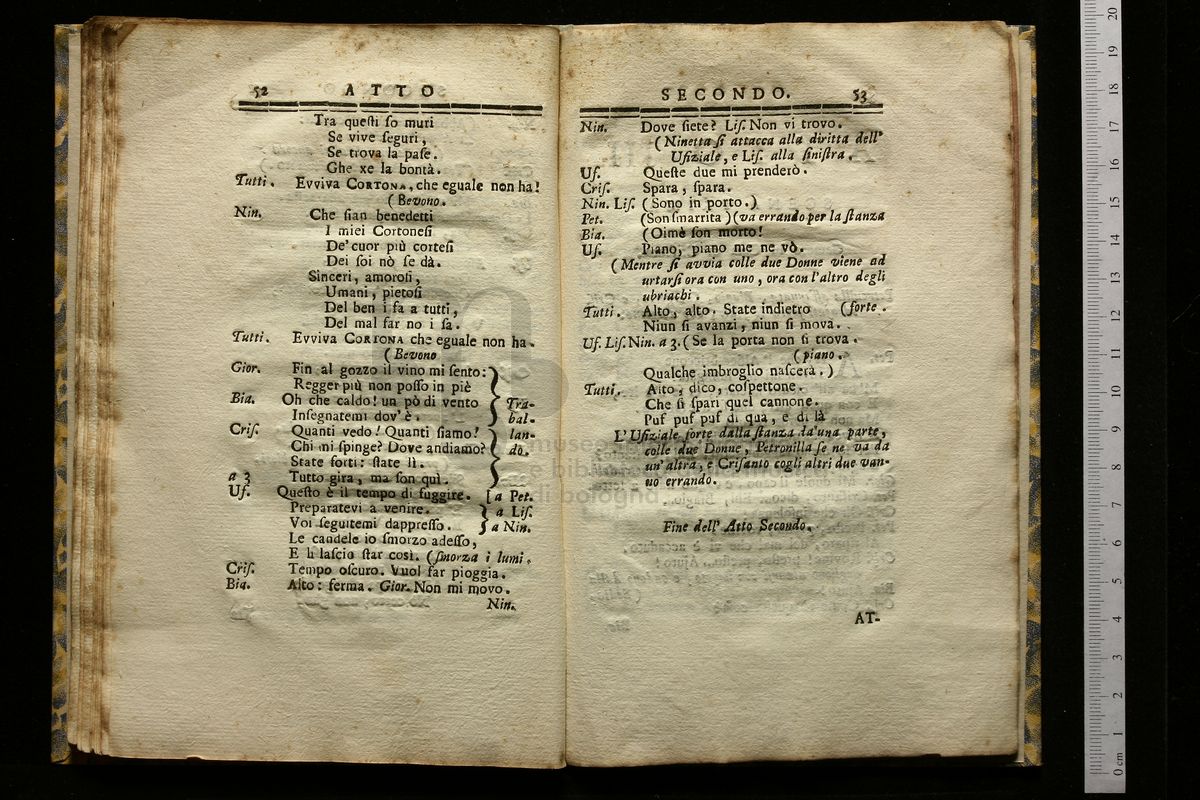 52 ATTO
Tra questi so muri
Se vive seguri,
Se trova la pase.
Ghe xe la bontà.
Tutti. Evviva CORTONA, che eguale non ha!
(Bevono.
Nin. Che sian benedetti
I miei Cortonesi
De' cuor più cortesi
Dei soi nò se dà.
Sinceri, amorosi,
Umani, pietosi
Del ben i fa a tutti,
Del mal far no i sa.
Tutti. Evviva CORTONA che eguale non ha.
(Bevono
Gior. Fin al gozzo il vino mi sento:
Regger più non posso in piè
Bia. Oh che caldo! un pò di vento
Insegnatemi dov'è.
Cris. Quanti vedo! Quanti siamo!
Chi mi spinge? Dove andiamo?
State forti: state lì.
a 3 Tutto gira, ma son quì.
Trabal-
lan-
do.
Uf. Questo è il tempo di fuggire. [a Pet.
Preparatevi a venire. } a Lis.
Voi seguitemi dappresso. } a Nin.
Le candele io smorzo adesso,
E li lascio star così. (smorza i lumi.
Cris. Tempo oscuro. Vuol far pioggia.
Bia. Alto: ferma. Gior. Non mi movo.
Nin.
SECONDO. 53
Nin. Dove siete? Lis. Non vi trovo.
(Ninetta si attacca alla diritta dell'
Ufiziale, e Lis. alla sinistra.
Uf. Queste due mi prenderò.
Cris. Spara, spara.
Nin. Lis. (Sono in porto.)
Pet. (Son smarrita) (va errando per la stanza
Bia. (Oimè son morto!
Uf. Piano, piano me ne vò.
(Mentre si avvia colle due Donne viene ad
urtarsi ora con uno, ora con l'altro degli
ubriachi.
Tutti. Alto, alto. State indietro (forte.
Niun si avanzi, niun si mova.
Uf. Lis. Nin. a 3. (Se la porta non si trova.
(piano.
Qualche imbroglio nascerà.)
Tutti. Alto, dico, cospettone.
Che si spari quel cannone.
Puf puf puf di qua, e di là
L'Ufiziale sorte dalla stanza da una parte,
colle due Donne, Petronilla se ne va da
un'altra, e Crisanto cogli altri due van-
no errando.
Fine dell' Atto Secondo.
AT-
museo
e biblioteca
di bologna
0 cm 1 2 3 4 5 6 7 8 9 10 11 12 13 14 15 16 17 18 19 20